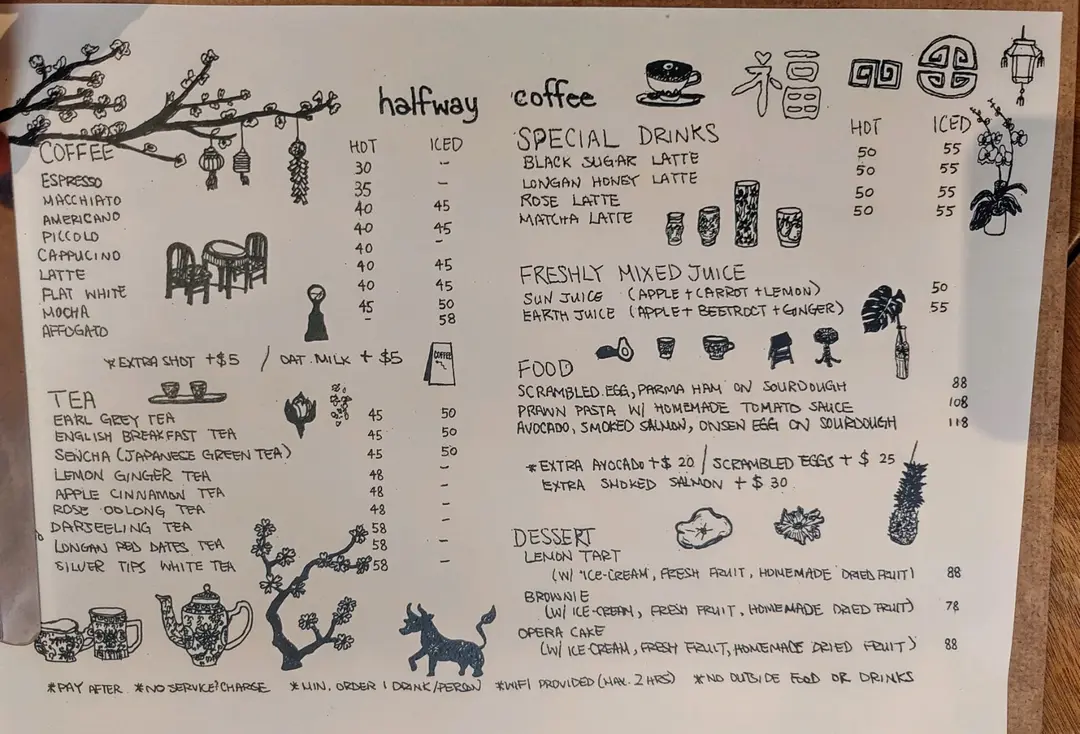 halfway coffee
福
COFFEE HOT ICED
ESPRESSO 30 -
MACCHIATO 35 -
AMERICANO 40 45
PICCOLO 40 45
CAPPUCINO 40 -
LATTE 40 45
FLAT WHITE 40 45
MOCHA 45 50
AFFOGATO - 58
*EXTRA SHOT +$5 / OAT MILK + $5
COFFEE
TEA
EARL GREY TEA 45 50
ENGLISH BREAKFAST TEA 45 50
SENCHA (JAPANESE GREEN TEA) 45 50
LEMON GINGER TEA 48 -
APPLE CINNAMON TEA 48 -
ROSE OOLONG TEA 48 -
DARJEELING TEA 58 -
LONGAN RED DATES TEA 58 -
SILVER TIPS WHITE TEA 58 -
SPECIAL DRINKS HOT ICED
BLACK SUGAR LATTE 50 55
LONGAN HONEY LATTE 50 55
ROSE LATTE 50 55
MATCHA LATTE 50 55
FRESHLY MIXED JUICE
SUN JUICE (APPLE + CARROT + LEMON) 50
EARTH JUICE (APPLE + BEETROOT + GINGER) 55
FOOD
SCRAMBLED EGG, PARMA HAM ON SOURDOUGH 88
PRAWN PASTA W/ HOMEMADE TOMATO SAUCE 108
AVOCADO, SMOKED SALMON, ONSEN EGG ON SOURDOUGH 118
*EXTRA AVOCADO +$ 20 / SCRAMBLED EGGS + $ 25
EXTRA SMOKED SALMON + $ 30
DESSERT
LEMON TART
(W/ ICE-CREAM, FRESH FRUIT, HOMEMADE DRIED FRUIT) 88
BROWNIE
(W/ ICE-CREAM, FRESH FRUIT, HOMEMADE DRIED FRUIT) 78
OPERA CAKE
(W/ ICE-CREAM, FRESH FRUIT, HOMEMADE DRIED FRUIT) 88
*PAY AFTER *NO SERVICE CHARGE *MIN. ORDER 1 DRINK/PERSON *WIFI PROVIDED (MAX. 2 HRS) *NO OUTSIDE FOOD OR DRINKS